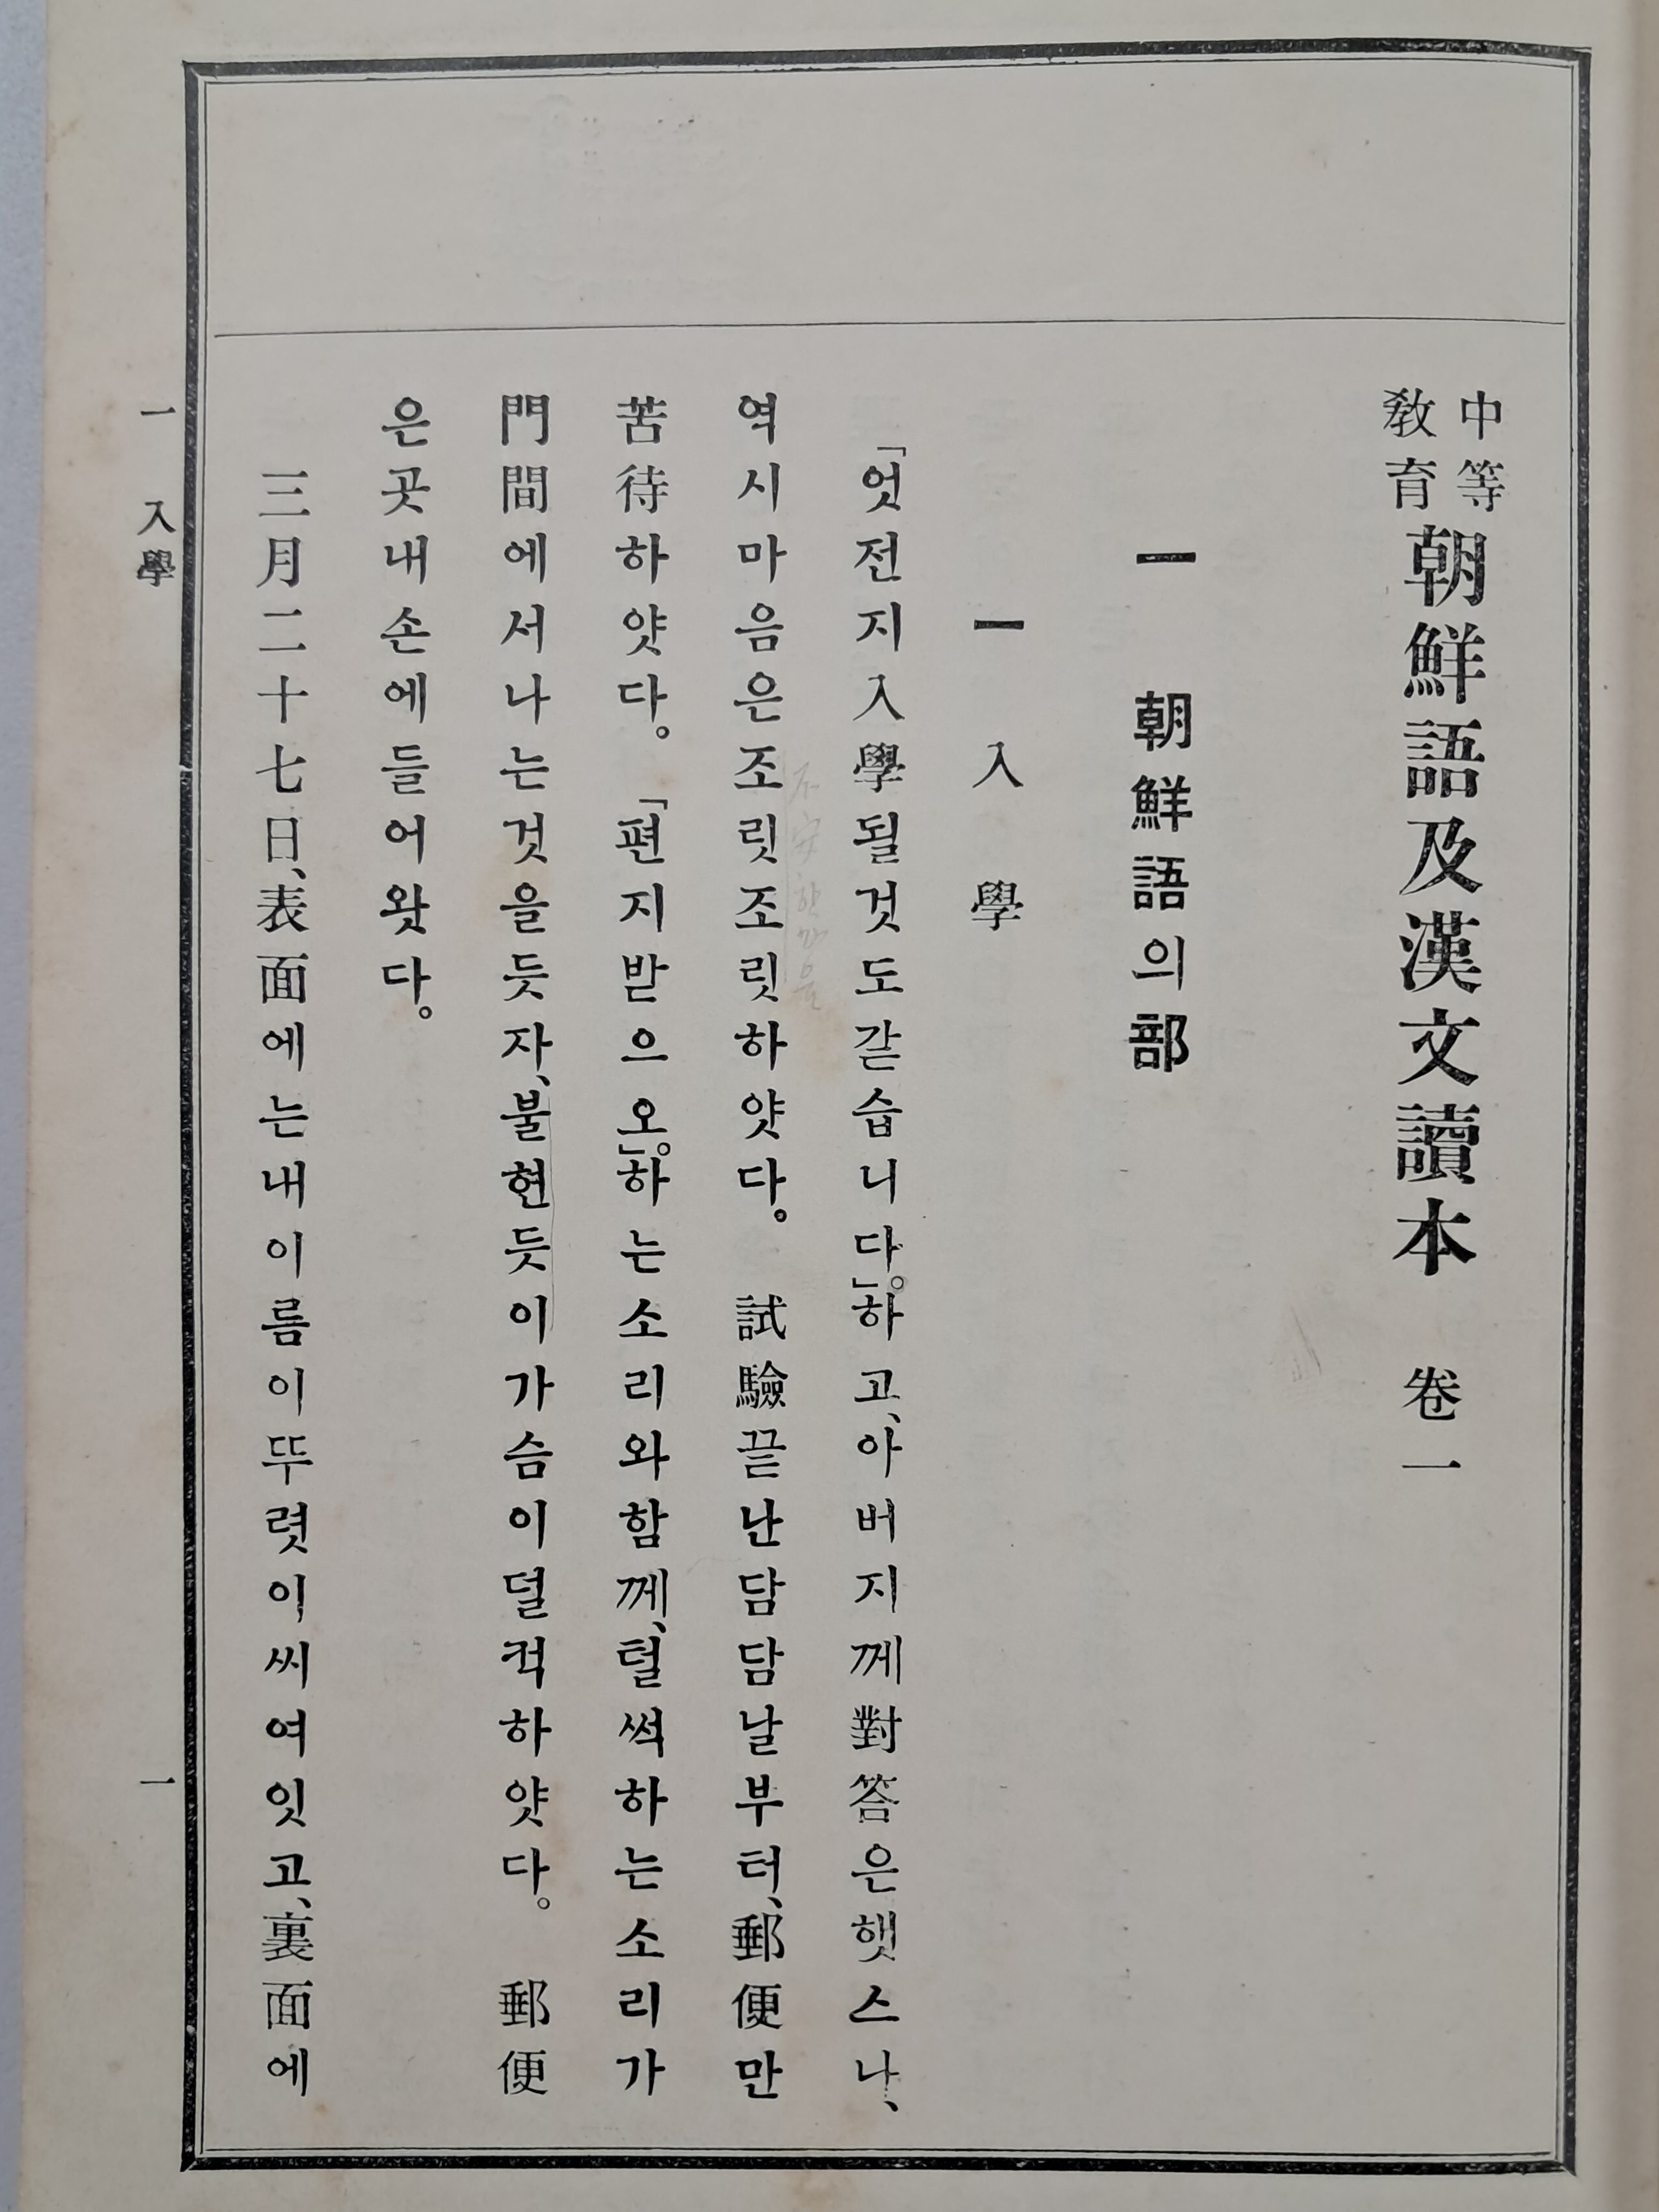 中等教育 朝鮮語及漢文讀本 卷一
一 朝鮮語의部
一 入學
「엇전지入學될것도갇습니다。」하고、아버지께對答은햇스나、
역시마음은조릿조릿하얏다。 試驗끝난담담날부터、郵便만
苦待하얏다。 「편지받으오。」하는소리와함께、털썩하는소리가
門間에서나는것을듯자、불현듯이가슴이덜컥하얏다。 郵便
은곳내손에들어왓다。
三月二十七日、表面에는내이름이뚜렷이씨여잇고、裏面에
一 入學 一